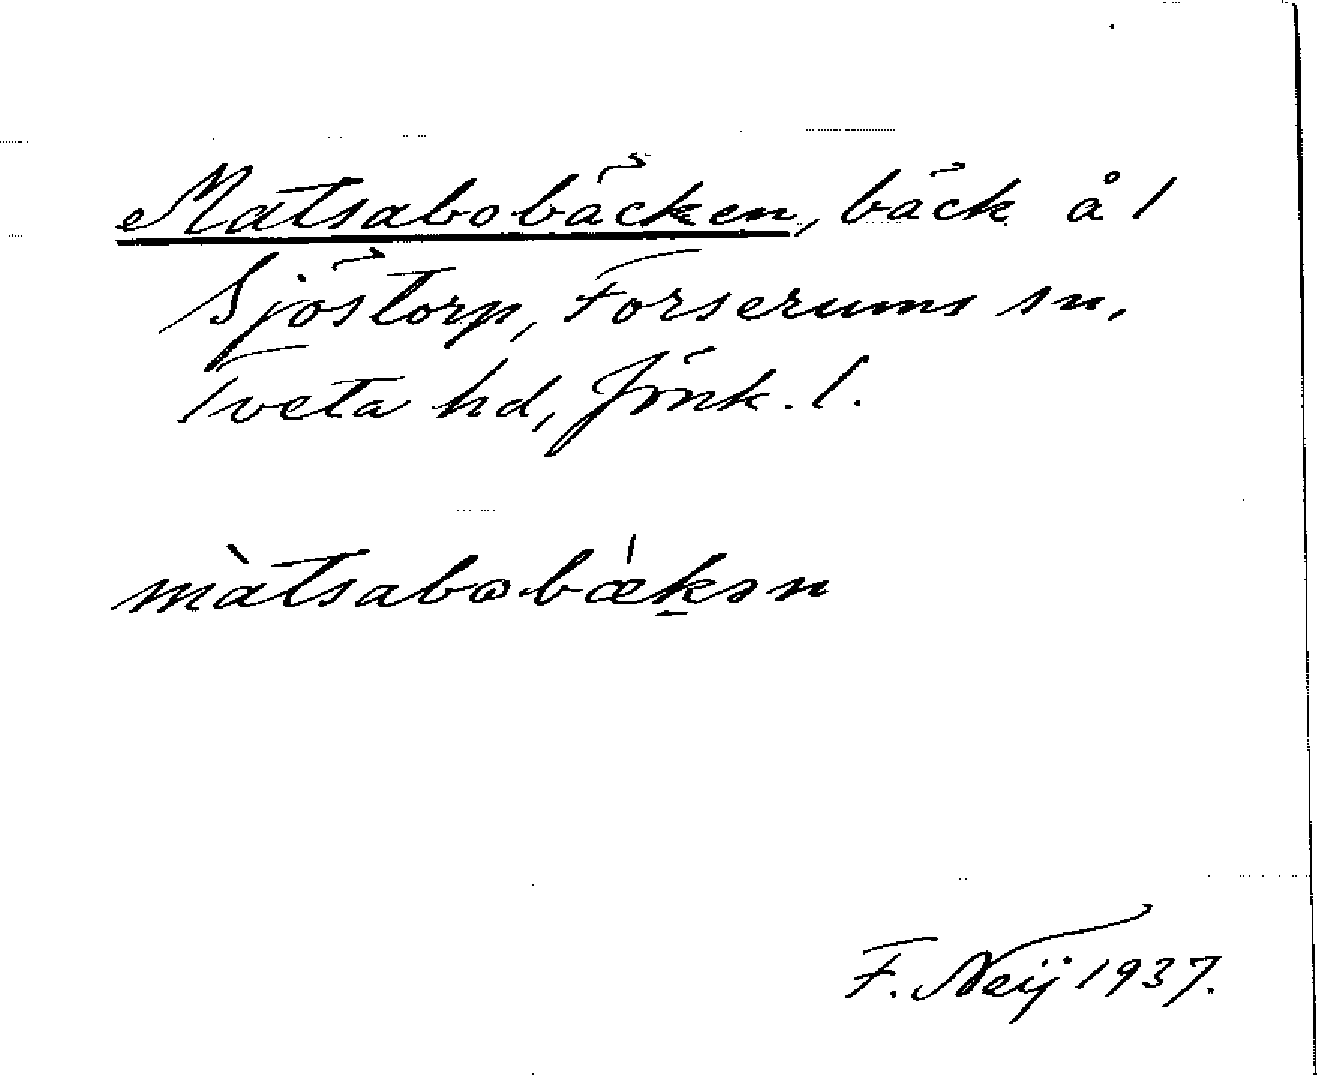 Matsabobäcken, bäck å 1
Sjöstorp, Forserums sn,
Tveta hd, Jönk. l.
màtsabωbæ̀kən
F. Neij 1937.